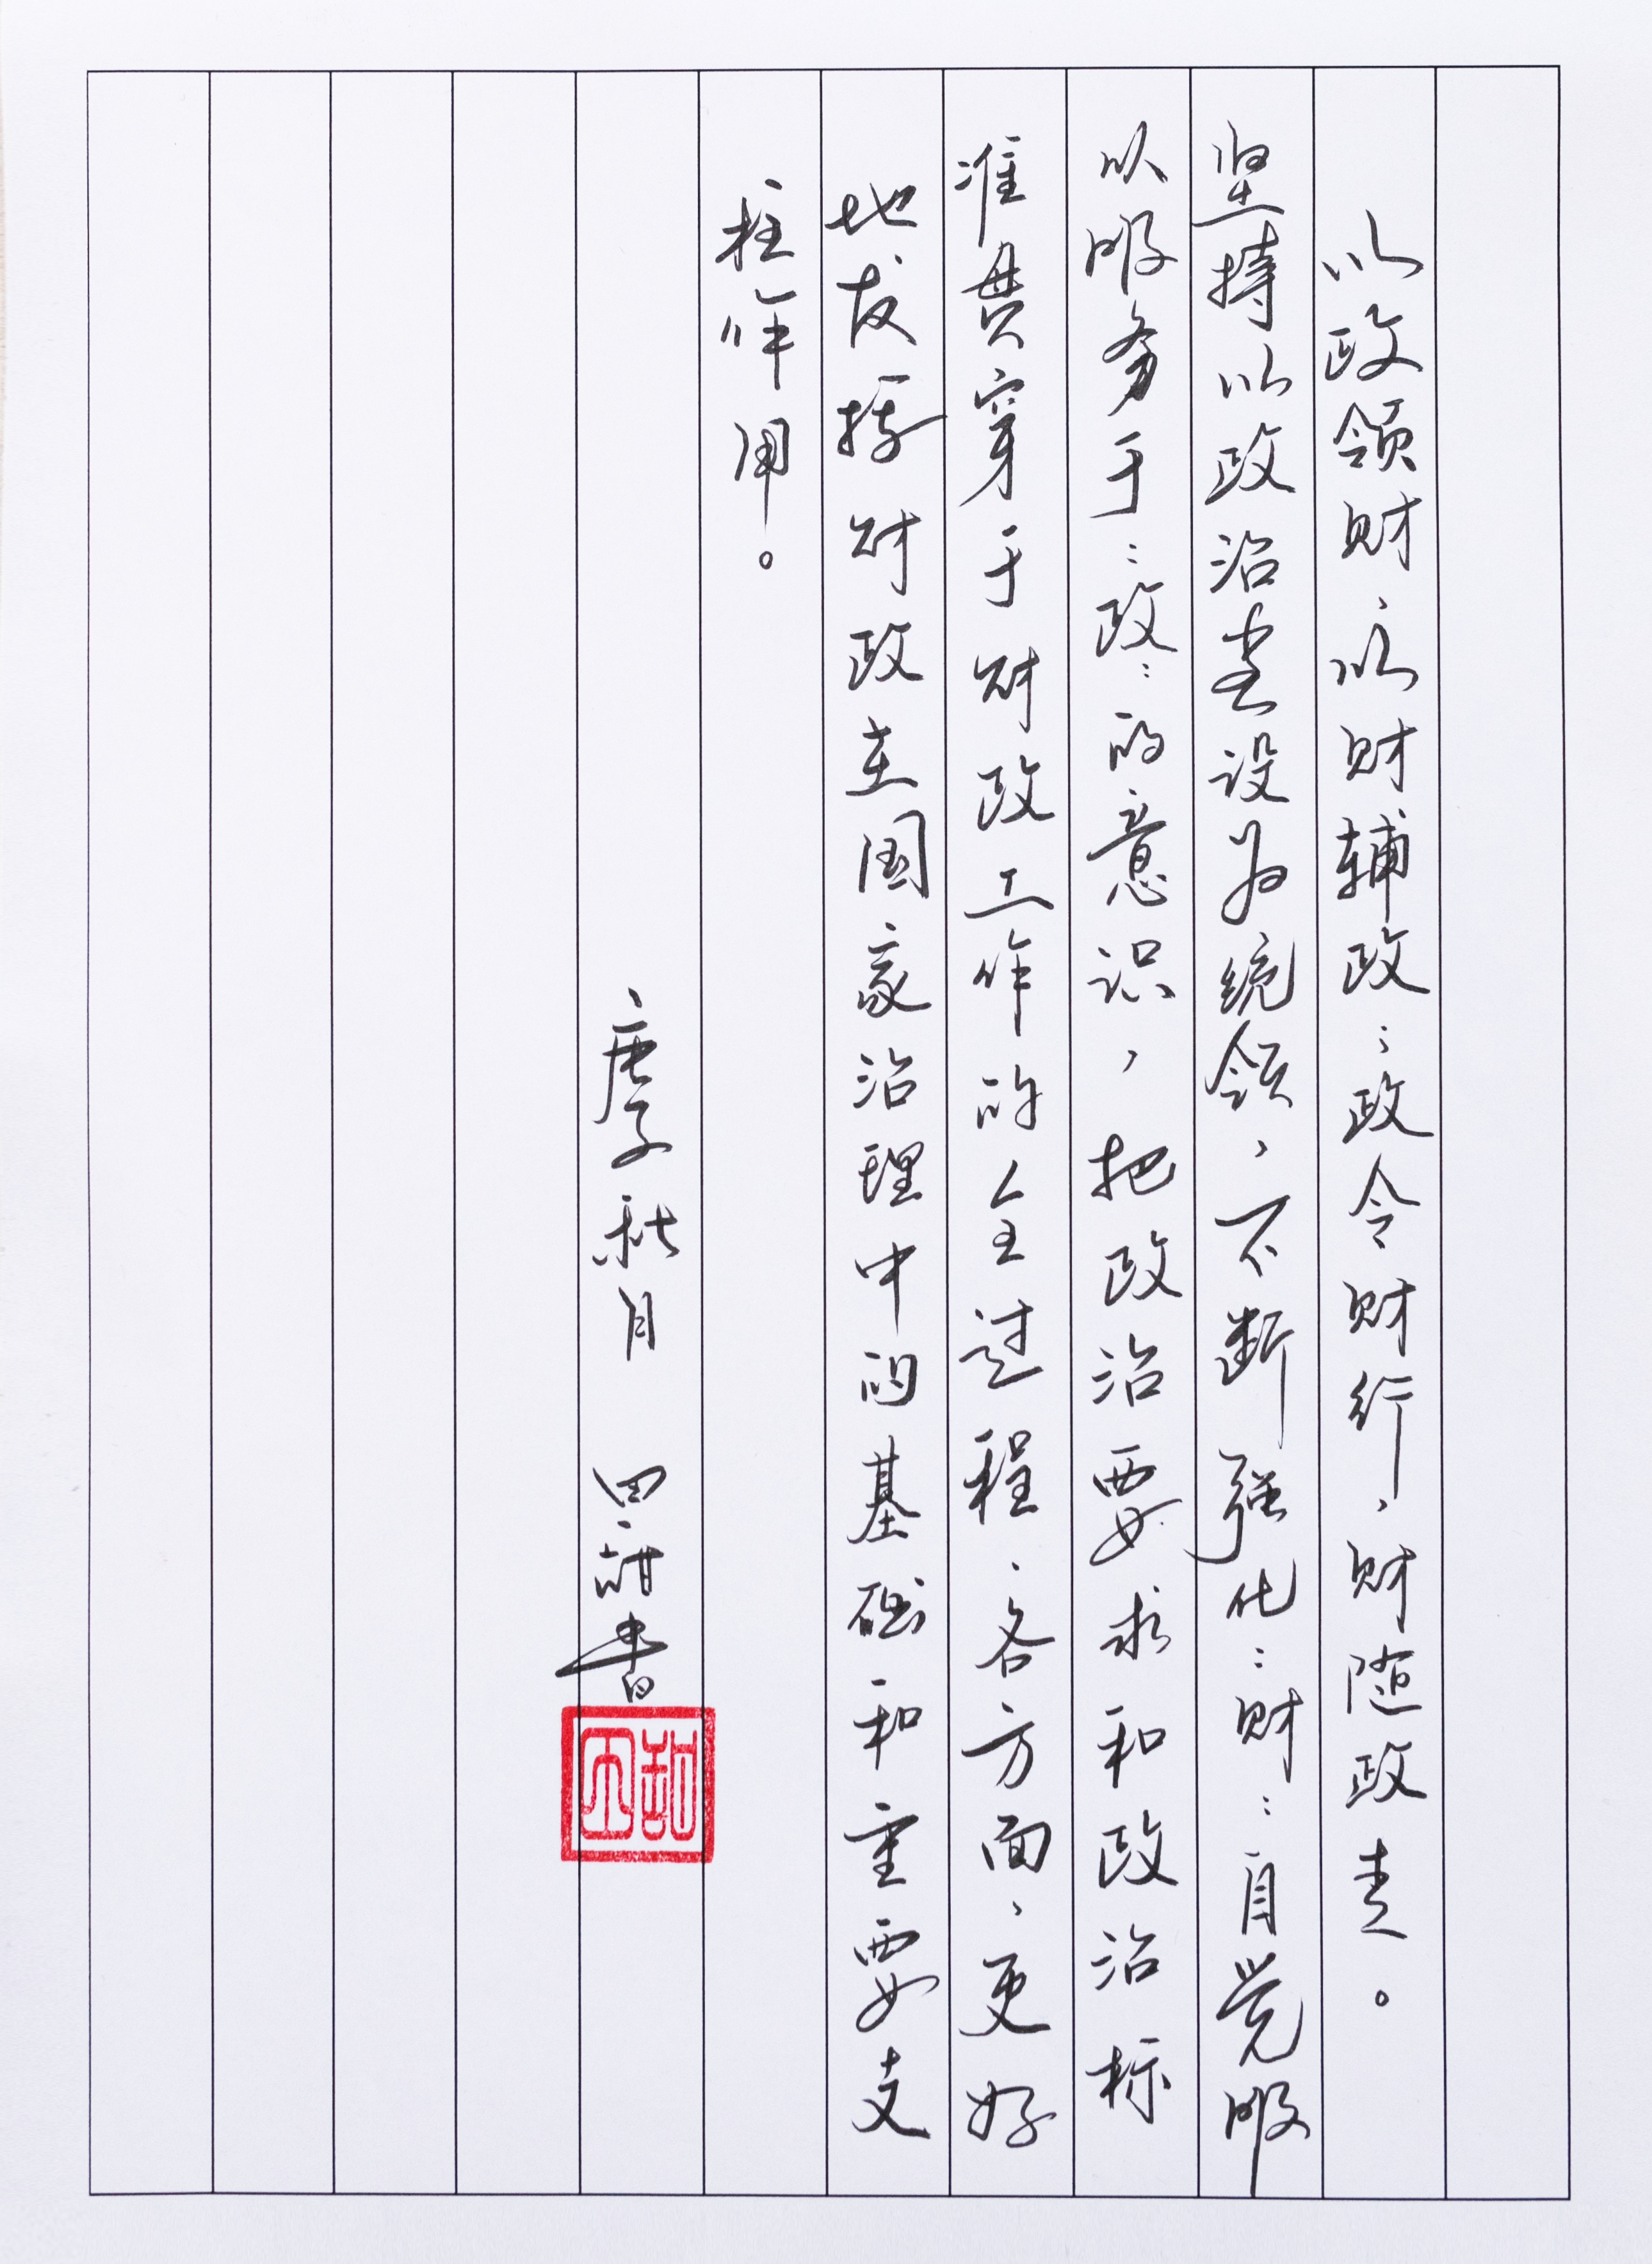 以政领财、以财辅政；政令财行、财随政走。
坚持以政治建设为统领，不断强化“财”自觉服
从服务于“政”的意识，把政治要求和政治标
准贯穿于财政工作的全过程、各方面，更好
地发挥财政在国家治理中的基础和重要支
柱作用。
庚子秋月 书